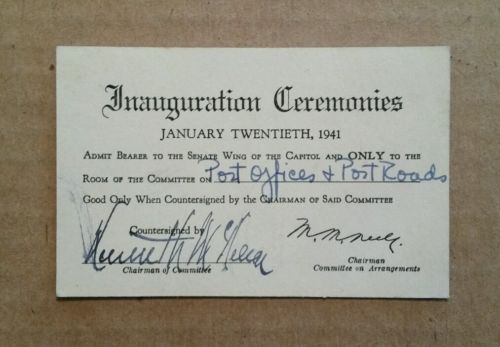 Inauguration Ceremonies
JANUARY TWENTIETH, 1941
ADMIT BEARER TO THE SENATE WING OF THE CAPITOL AND ONLY TO THE
ROOM OF THE COMMITTEE ON Post Offices & Post Roads
Good Only When Countersigned by the CHAIRMAN OF SAID COMMITTEE
Countersigned by
Kenneth McKellar
M. M. Neely
Chairman of Committee
Chairman
Committee on Arrangements